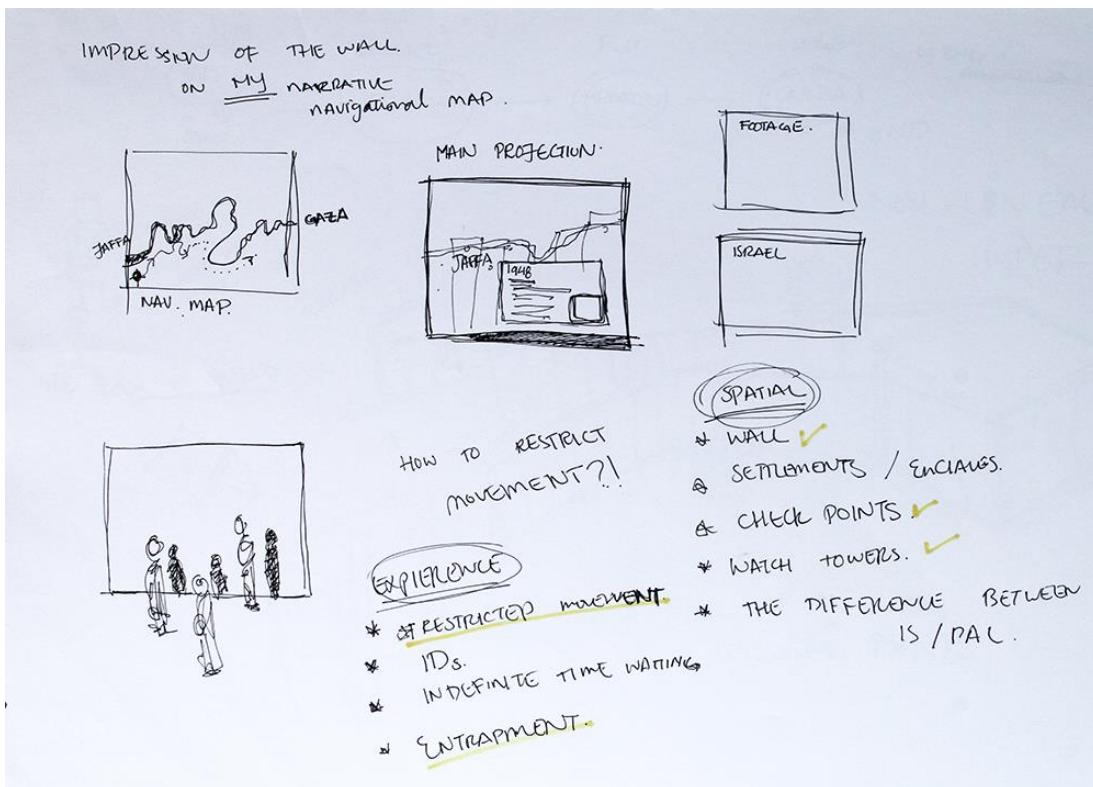 IMPRESSION OF THE WALL.
ON MY NARRATIVE
NAVIGATIONAL MAP.
JAFFA
GAZA
NAV. MAP.
MAIN PROJECTION.
JAFFA
1948
FOOTAGE.
ISRAEL
HOW TO RESTRICT
MOVEMENT?!
EXPIERENCE
* RESTRICTED MOVEMENT.
* IDs.
* INDEFINITE TIME WAITING
* ENTRAPMENT.
SPATIAL
* WALL ✓
* SETTLEMENTS / ENCLAVES.
* CHECK POINTS. ✓
* WATCH TOWERS. ✓
* THE DIFFERENCE BETWEEN
IS / PAL.